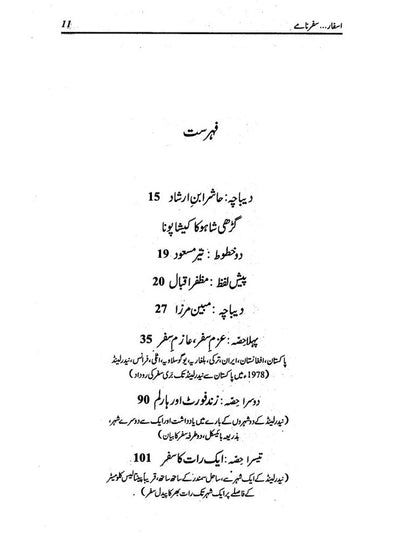 اسفار... سفرنامے 11
فہرست
دیباچہ: حاشر ابنِ ارشاد 15
گڑھی شاہو کا کیشا پونا
دو خطوط: نیّر مسعود 19
پیش لفظ: مظفر اقبال 20
دیباچہ: مبین مرزا 27
پہلا حصہ: عزمِ سفر، عازمِ سفر 35
(پاکستان، افغانستان، ایران، ترکی، بلغاریہ، یوگوسلاویہ، اٹلی، فرانس، نیدرلینڈ
1978ء میں پاکستان سے نیدرلینڈ تک بَرّی سفر کی روداد)
دوسرا حصہ: زندفورٹ اور ہارلم 90
(نیدرلینڈ کے دو شہروں کے بارے میں یادداشت اور ایک سے دوسرے شہر،
بذریعہ بائیسکل، دو طرفہ سفر کا بیان)
تیسرا حصہ: ایک رات کا سفر 101
(نیدرلینڈ کے ایک شہر سے، ساحل سمندر کے ساتھ ساتھ، قریباً پینتالیس کلومیٹر
کے فاصلے پر ایک شہر تک رات بھر کا پیدل سفر)